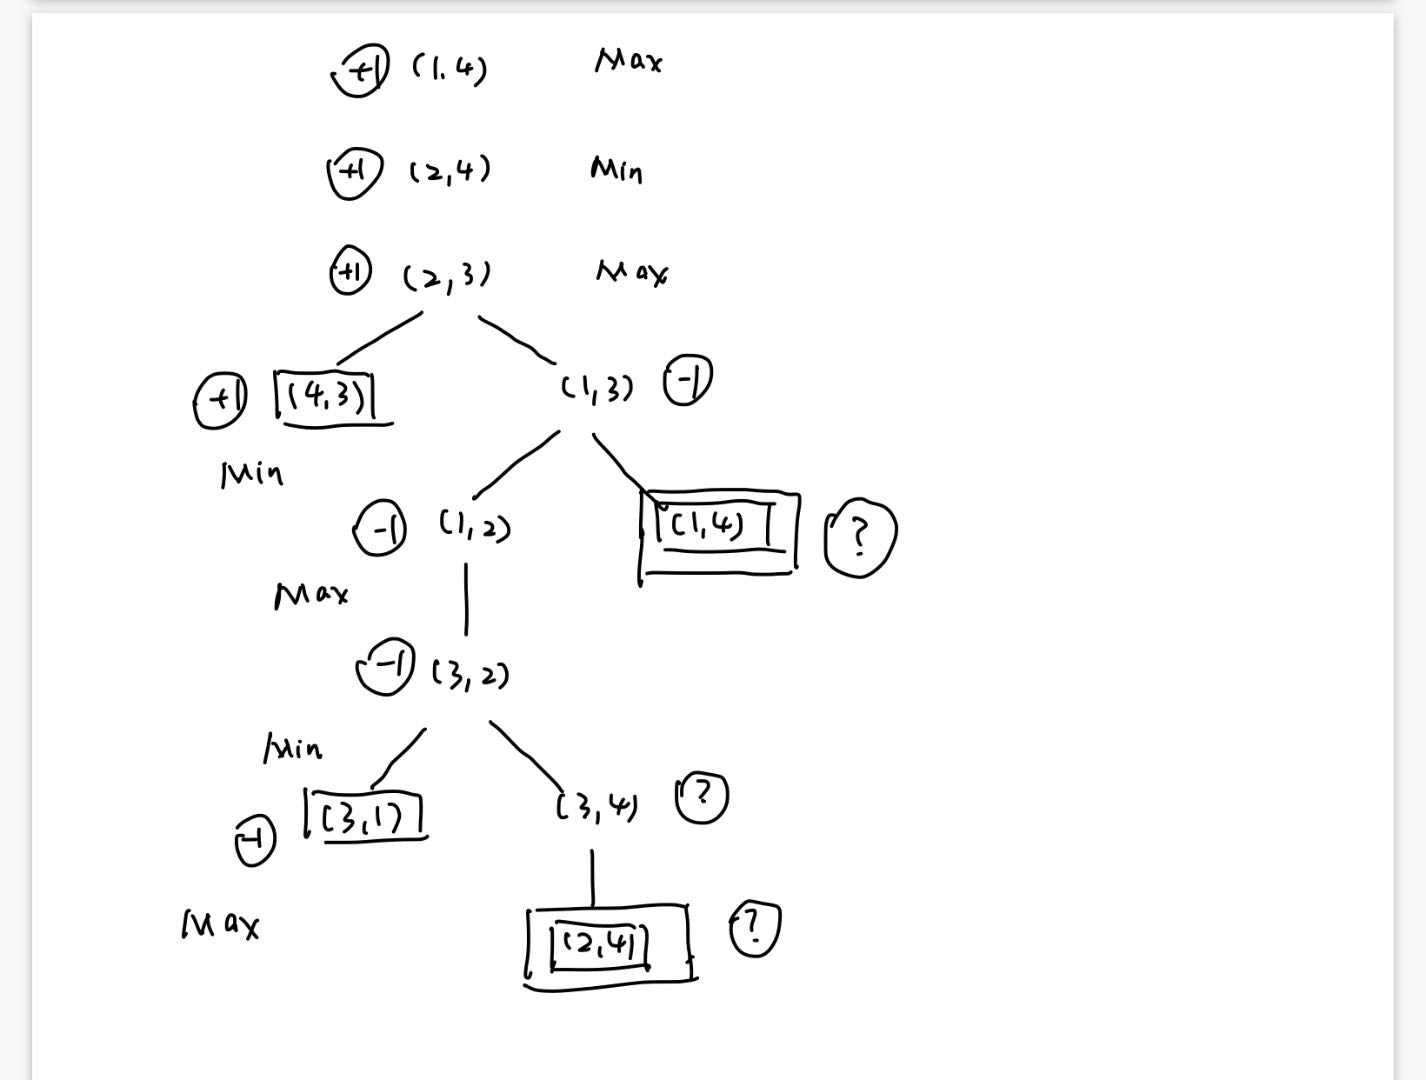 +1 (1.4) Max
+1 (2,4) Min
+1 (2,3) Max
+1 (4,3) (1,3) -1
Min
-1 (1,2) (1,4) ?
Max
-1 (3,2)
Min
(3,1) (3,4) ?
-1
Max (2,4) ?